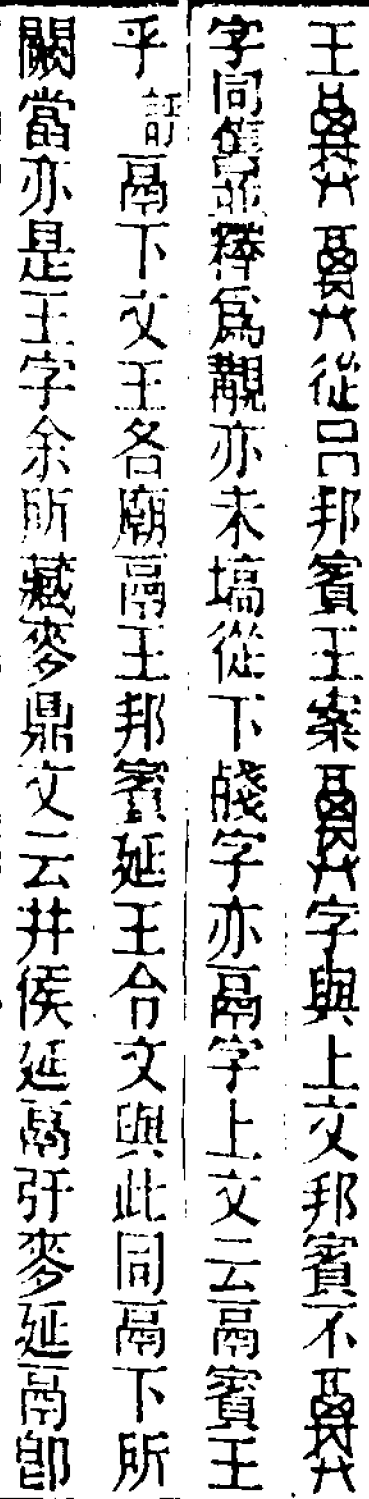 王從呂邦賓王案字與上文邦賓不
字同舊並釋為觀亦未塙從下字亦鬲字上文云鬲賓王
乎鬲下文王各廟鬲王邦賓延王令文與此同鬲下所
闕當亦是王字余所藏麥鼎文云井侯延鬲麥延鬲卽